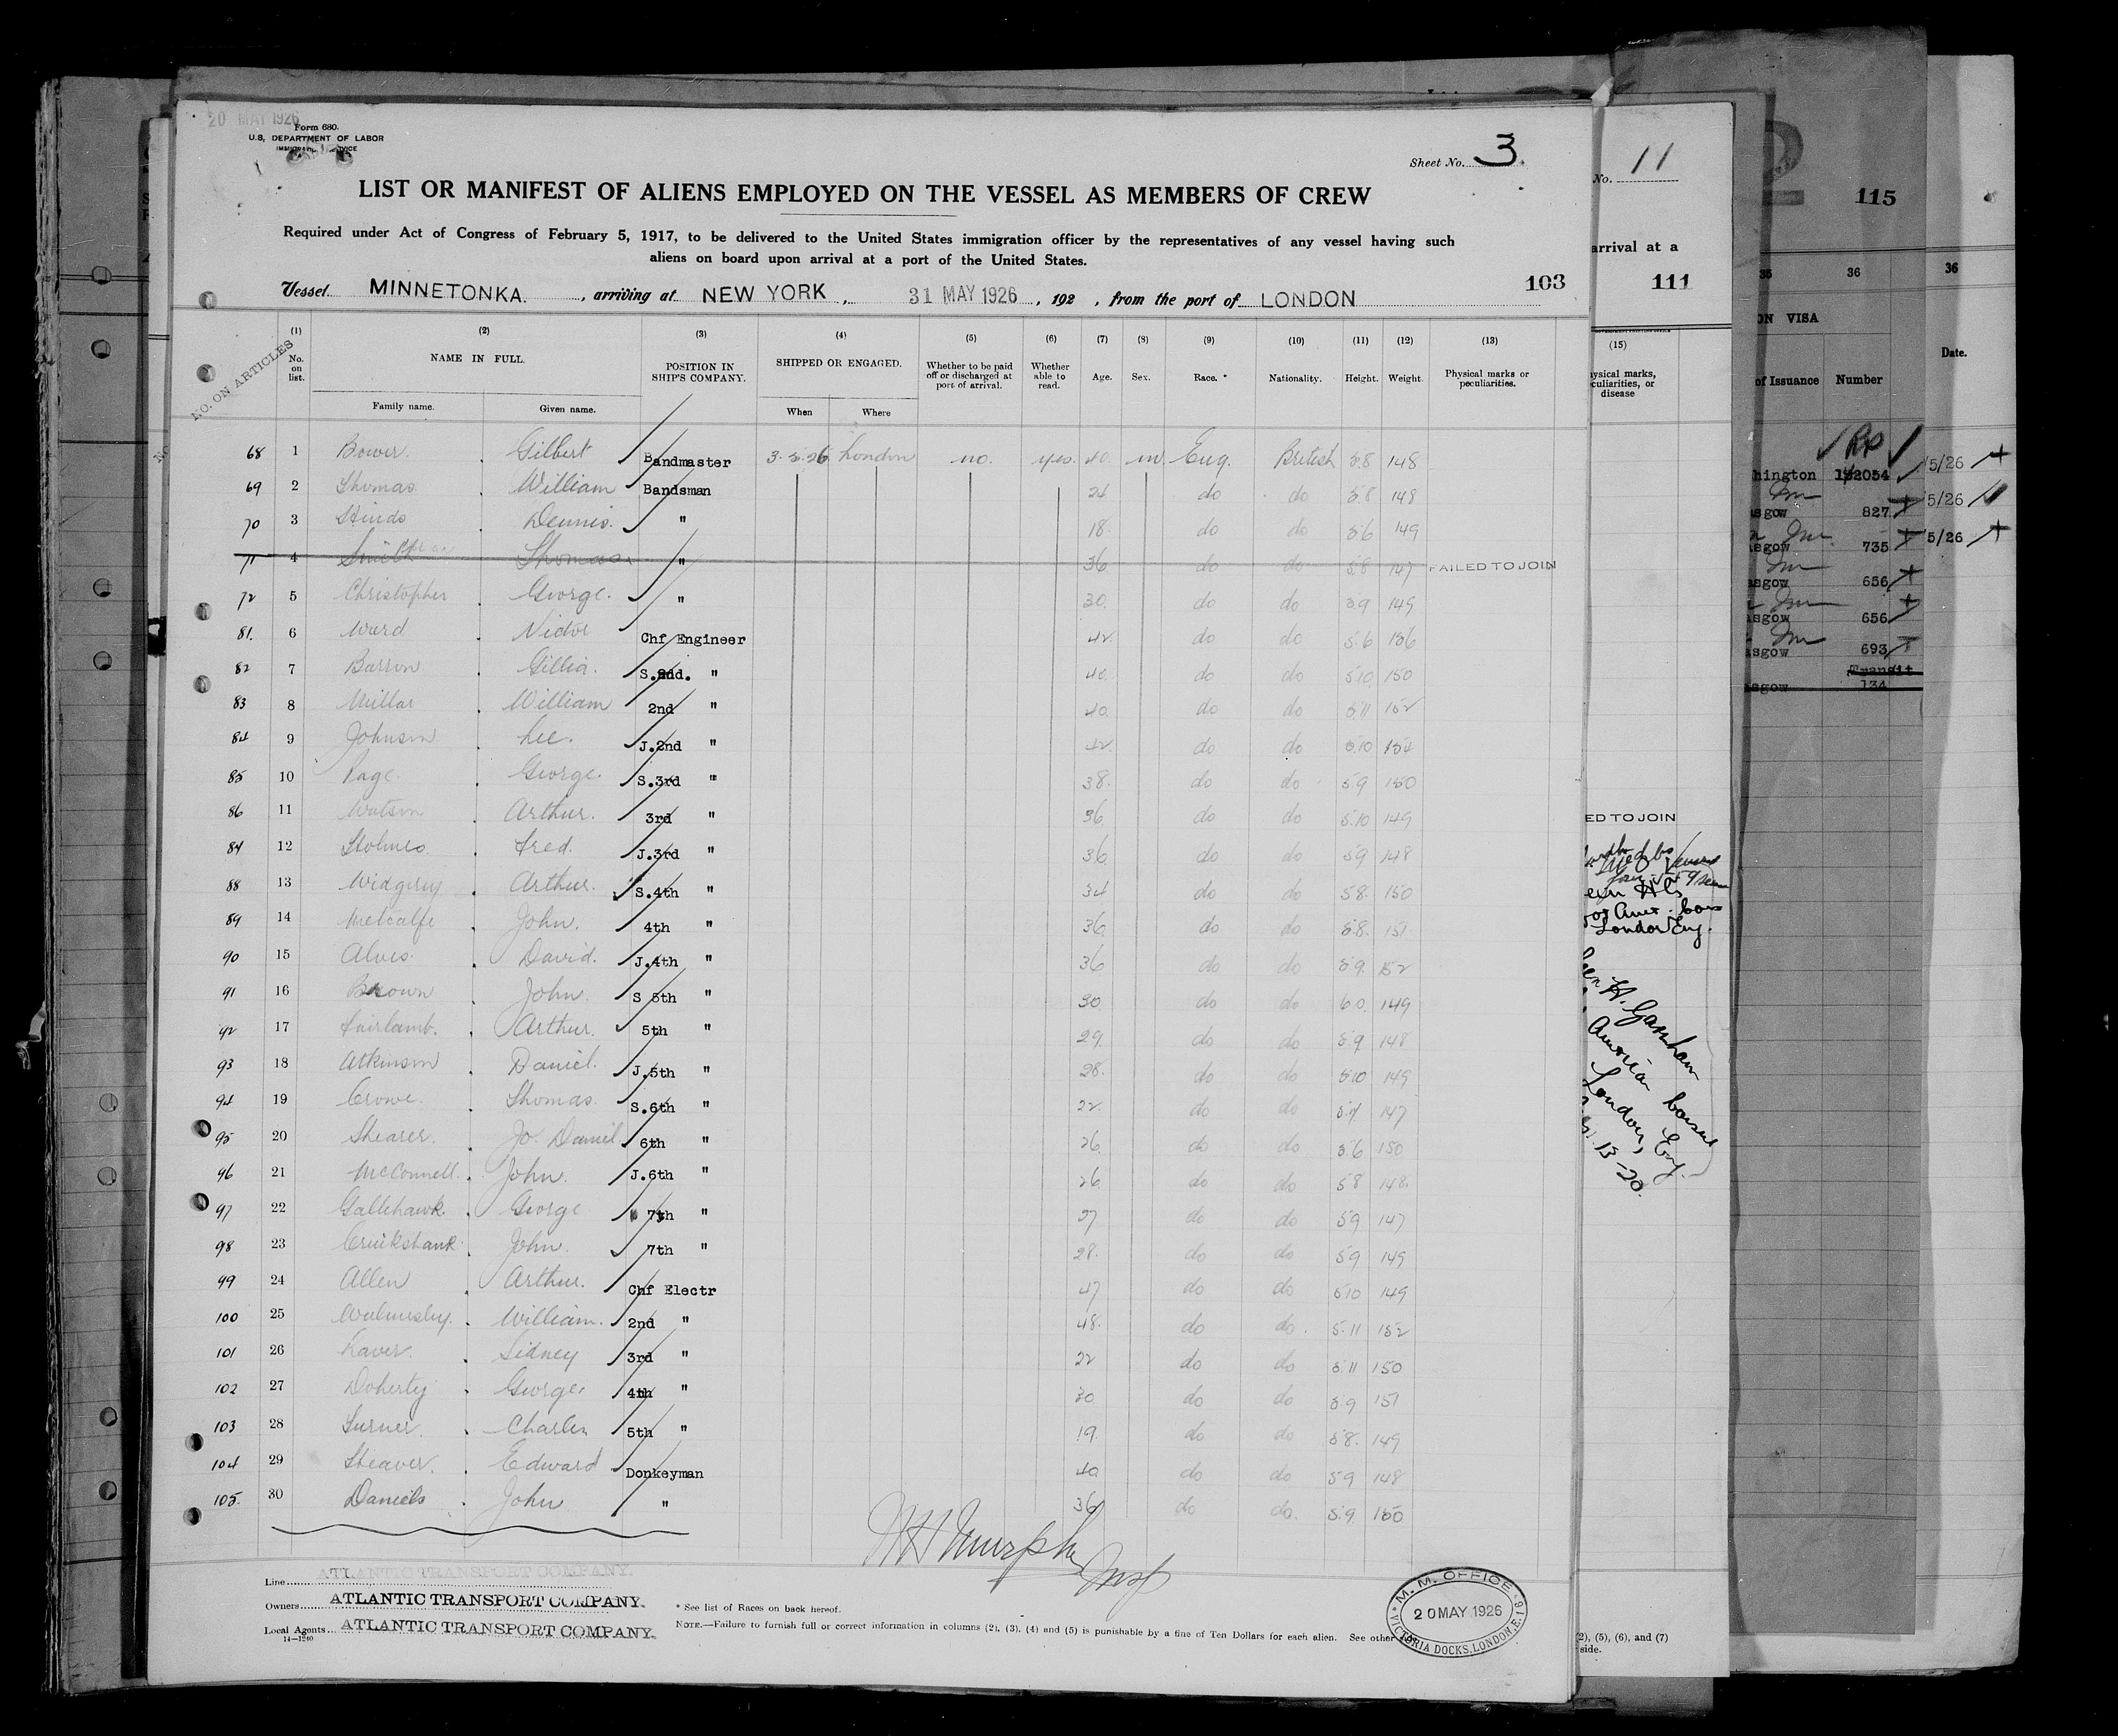 20 MAY 1926
Form 680.
U.S. DEPARTMENT OF LABOR
Sheet No. 3.
LIST OR MANIFEST OF ALIENS EMPLOYED ON THE VESSEL AS MEMBERS OF CREW
Required under Act of Congress of February 5, 1917, to be delivered to the United States immigration officer by the representatives of any vessel having such
aliens on board upon arrival at a port of the United States.
103
Vessel MINNETONKA. , arriving at NEW YORK , 31 MAY 1926 , 192 , from the port of LONDON
NO. ON ARTICLES
(1) (2) (3) (4) (5) (6) (7) (8) (9) (10) (11) (12) (13)
No. on list. NAME IN FULL. POSITION IN SHIP'S COMPANY. SHIPPED OR ENGAGED. Whether to be paid off or discharged at port of arrival. Whether able to read. Age. Sex. Race.* Nationality. Height. Weight. Physical marks or peculiarities.
Family name. Given name. When Where
68 1 Bower. Gilbert Bandmaster 3.5.26 London no. yes. 40. m. Eng. British 5.8 148
69 2 Thomas William Bandsman 24 do do 5.8 148
70 3 Hinds Dennis. " 18. do do 5.6 149
71 4 Smith Thomas " 36 do do 5.8 147 FAILED TO JOIN
72 5 Christopher George. " 30. do do 5.9 149
81. 6 Ward Victor Chf Engineer 42. do do 5.6 156
82 7 Barron S.2nd. " 40. do do 5.10 150
83 8 Millar William 2nd " 40. do do 5.11 152
84 9 Johnson Lee. J.2nd " 42. do do 5.10 154
85 10 Page. George. S.3rd " 38. do do 5.9 150
86 11 Watson Arthur. 3rd " 36 do do 5.10 149
87 12 Holmes Fred. J.3rd " 36 do do 5.9 148
88 13 Widgery Arthur. S.4th " 34 do do 5.8. 150
89 14 Metcalfe John. 4th " 36 do do 5.8. 151
90 15 Alves. David. J.4th " 36 do do 5.9. 152
91 16 Brown John. S 5th " 30 do do 6.0. 149
92 17 Fairlamb. Arthur. 5th " 29. do do 5.9 148
93 18 Atkinson Daniel. J.5th " 28. do do 5.10 149
94 19 Crowe. Thomas. S.6th " 22. do do 147
95 20 Shearer. Jo. Daniel. 6th " 26. do do 5.6 150
96 21 McConnell. John. J.6th " 26. do do 5.8 148.
97 22 Gallehawk. George 7th " do do 5.9 147
98 23 Cruikshank John. 7th " 28. do do 5.9 149
99 24 Allen Arthur. Chf Electr 47 do do 5.10 149
100 25 Walmesley. William. 2nd " 48. do do. 5.11 152
101 26 Laver. Sidney 3rd " 22 do do 5.11 150
102 27 Doherty George. 4th " 30. do do 5.9 151
103 28 Turner. Charles 5th " 19. do do 5.8. 149
104 29 Edward Donkeyman 40 do do 5.9 148
105. 30 Daniels John " 36 do do. 5.9. 150
Murphy Insp
Line ATLANTIC TRANSPORT COMPANY.
Owners ATLANTIC TRANSPORT COMPANY.
Local Agents ATLANTIC TRANSPORT COMPANY.
14—1240
* See list of Races on back hereof.
NOTE.—Failure to furnish full or correct information in columns (2), (3), (4) and (5) is punishable by a fine of Ten Dollars for each alien. See other
M. M. OFFICE
20 MAY 1926
VICTORIA DOCKS, LONDON, E.16
No. 11
arrival at a
111
(15)
ysical marks,
culiarities, or
disease
ED TO JOIN
London Eng.
H. Gasnham
American Consul
London, Eng.
13-20.
(2), (5), (6), and (7)
side.
2
115
35 36 36
ON VISA
Date.
of Issuance Number
RP
hington 5/26
asgow 827 5/26
asgow 735 5/26
asgow 656
asgow 656
asgow 693
Transit
asgow 134